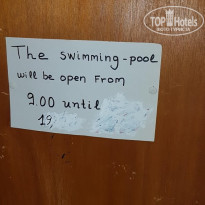 TOP HOTELS
The swimming-pool
will be open from
9.00 until
19